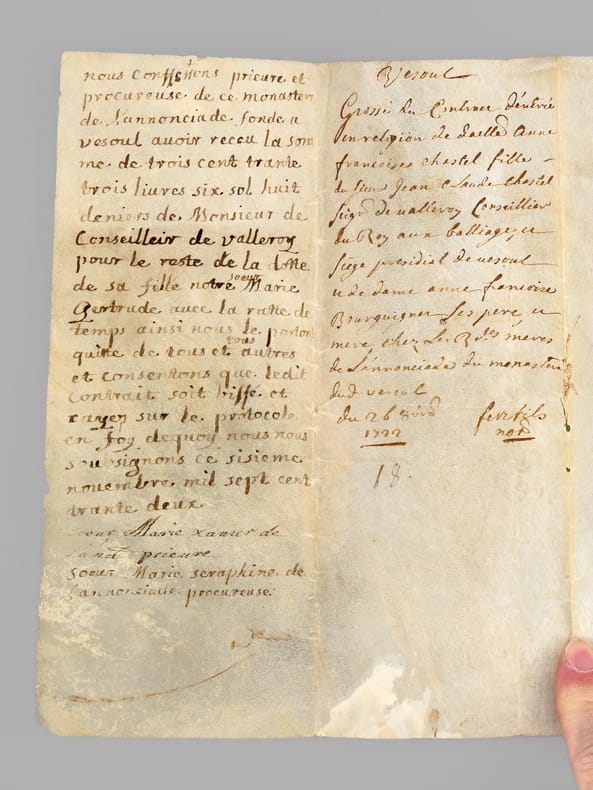 nous Confessons prieure et
procureuse de ce monaster
de Lannonciade fonde a
vesoul avoir receu la som
me de trois cent trante
trois liures six sol huit
deniers de Monsieur de
Conseilleir de valleroy
pour le reste de la dotte
de sa fille notre soeur Marie
Gertrude avec la ratte de
temps ainsi nous le porton
quitte de tous et tous autres
et consentons que ledit
Contrait soit biffé et
rayer sur le protocole
en foy dequoy nous nous
sousignons ce sisieme
novembre mil sept cent
trante deux
soeur Marie xavier de
prieure
soeur Marie seraphine de
Lannonciade procureuse
Vesoul
Grosse du d'entrée
en religion de Anne
francoises chastel fille
du sieur Jean Claude Chastel
seigr de valleroy Conseillier
du Roy aux balliage et
siége presidial de vesoul
et de dame anne francoise
Bourguignet ses pere et
mere chez Les Rdes meres
de Lannonciade du monastere
dud vesoul
du 26
1722
not
18.